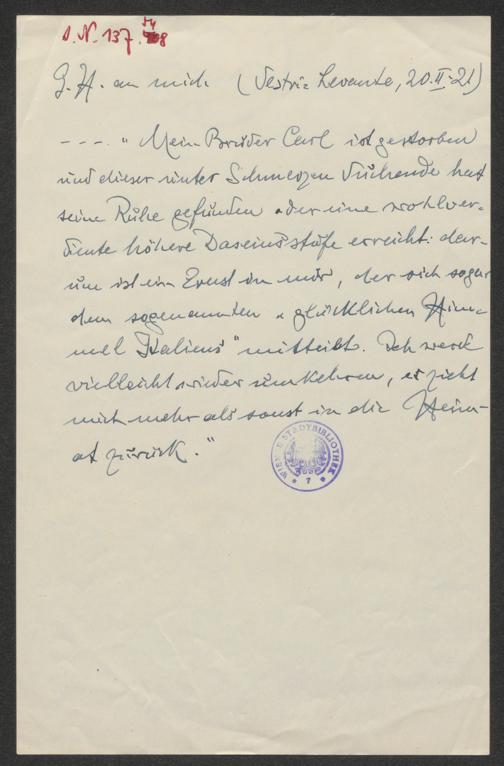 I. N. 137.
54
G. H. an mich (Sestri Levante, 20.II.21)
---- "Mein Bruder Carl ist gestorben
und dieser unter Schmerzen Suchende hat
seine Ruhe gefunden oder eine wohlver-
diente höhere Daseinsstufe erreicht: dar-
um ist ein Ernst in mir, der sich sogar
dem sogenannten "glücklichen Him-
mel Italiens" mitteilt. Ich werde
vielleicht wieder umkehren, es zieht
mich mehr als sonst in die Heim-
at zurück."
WIENER STADTBIBLIOTHEK
* 7 *